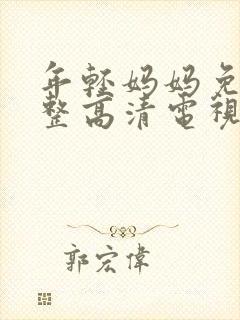 年輕妈妈免
整高清電視
郭宏偉